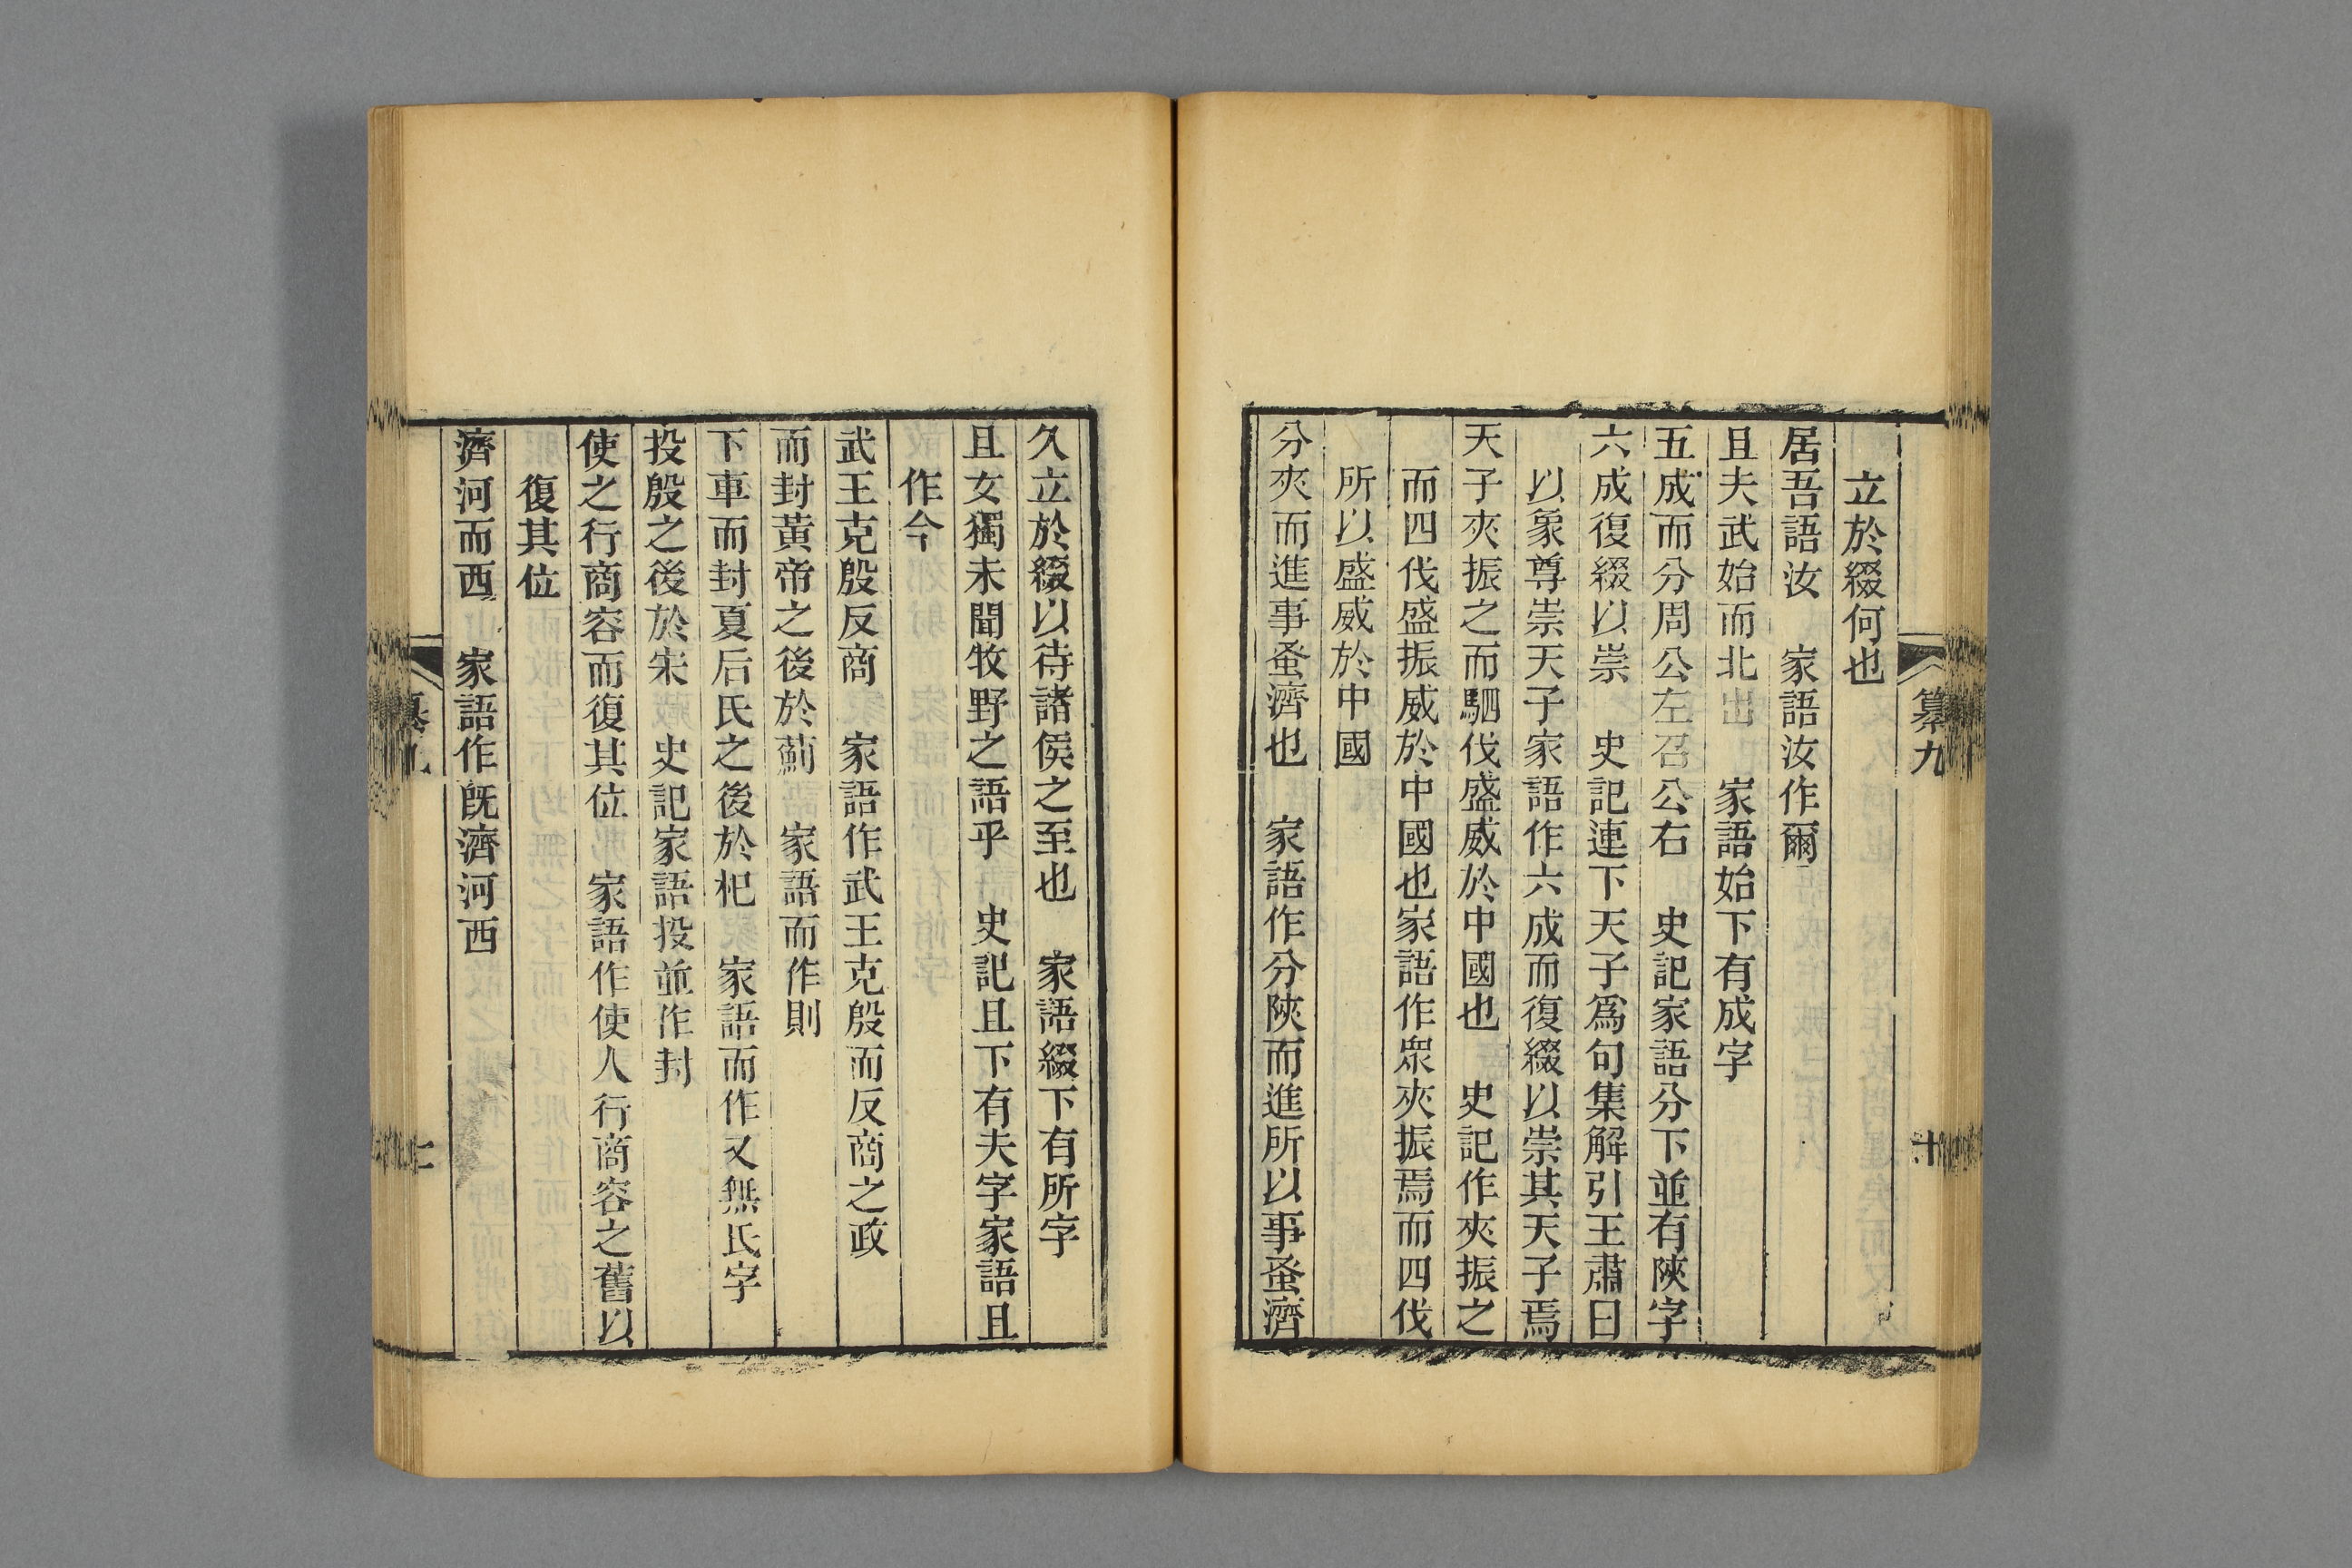 纂九
十
立於綴何也
居吾語汝　家語汝作爾
且夫武始而北出　家語始下有成字
五成而分周公左召公右　史記家語分下並有陝字
六成復綴以崇　史記連下天子爲句集解引王肅曰
以象尊崇天子家語作六成而復綴以崇其天子焉
天子夾振之而駟伐盛威於中國也　史記作夾振之
而四伐盛振威於中國也家語作衆夾振焉而四伐
所以盛威於中國
分夾而進事蚤濟也　家語作分陝而進所以事蚤濟
久立於綴以待諸侯之至也　家語綴下有所字
且女獨未聞牧野之語乎　史記且下有夫字家語且
作今
武王克殷反商　家語作武王克殷而反商之政
而封黃帝之後於薊　家語而作則
下車而封夏后氏之後於杞　家語而作又無氏字
投殷之後於宋　史記家語投並作封
使之行商容而復其位　家語作使人行商容之舊以
復其位
濟河而西　家語作既濟河西